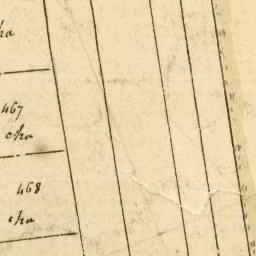 467
cha
468
cha